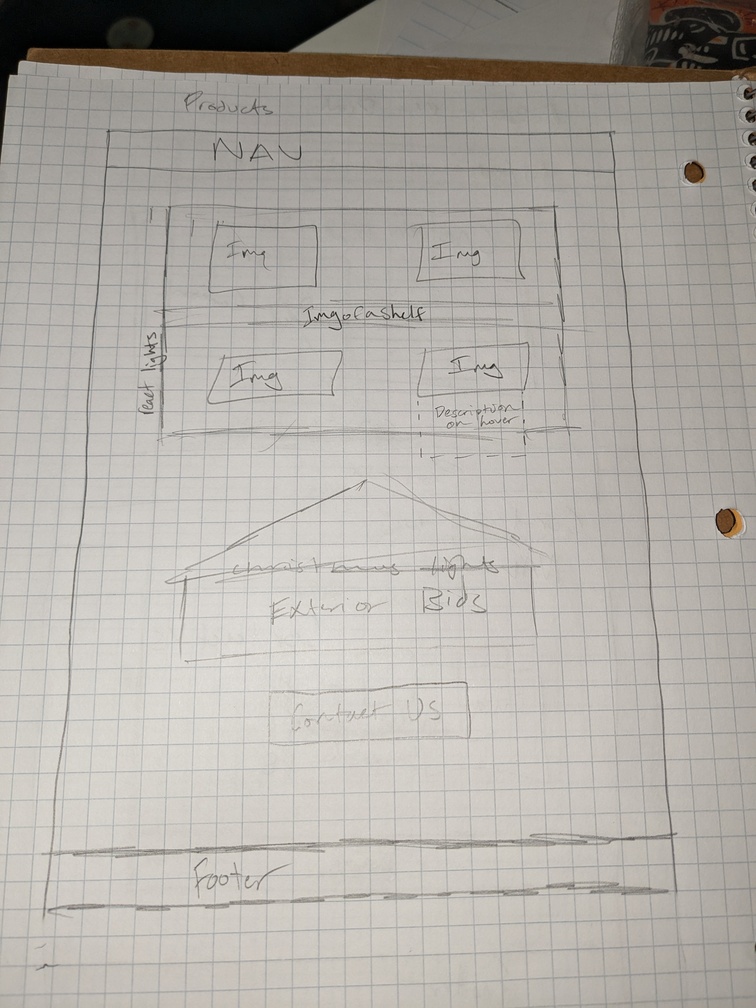 Products
NAV
Img
Img
Img of a shelf
react lights
Img
Img
Description
on hover
christmas lights
Exterior Bids
Contact Us
Footer